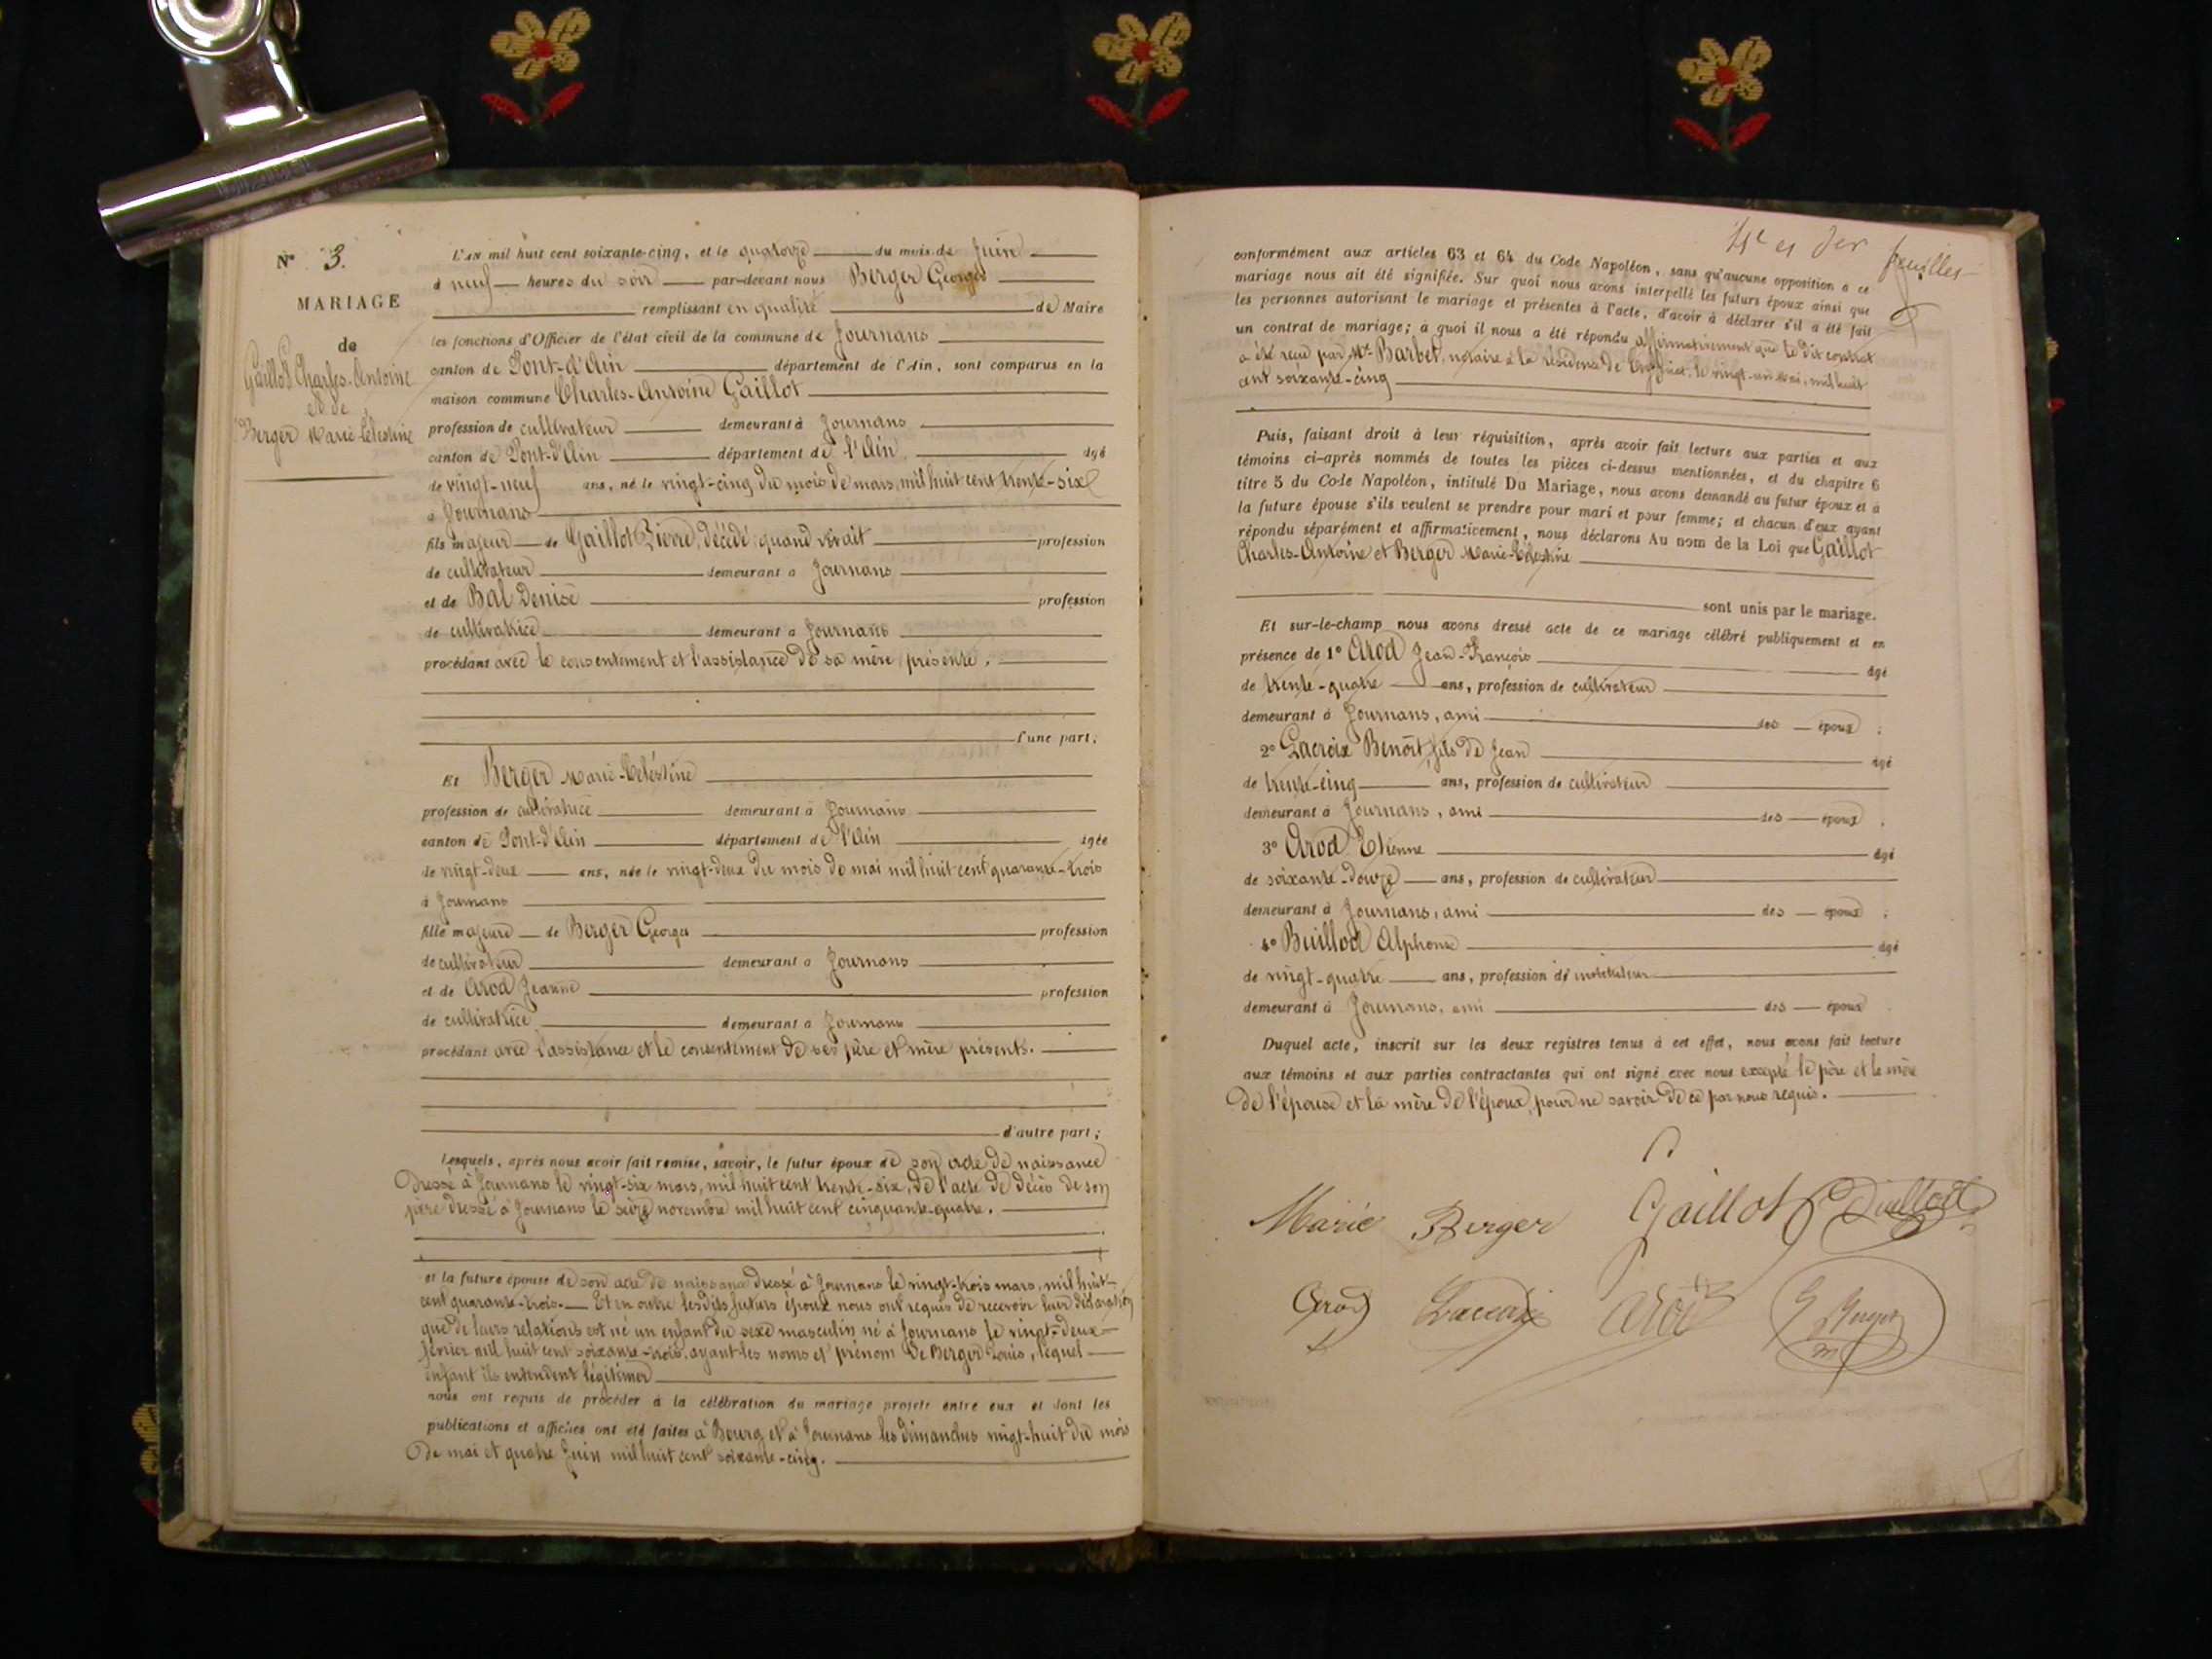 N° 3.
MARIAGE
de
Gaillot Charles-Antoine
et de
Berger Marie-Célestine
L'AN mil huit cent soixante-cinq, et le quatorze du mois de Juin
à neuf heures du soir par-devant nous Berger Georges
remplissant en qualité de Maire
les fonctions d'Officier de l'état civil de la commune de Journans
canton de Pont-d'Ain département de l'Ain, sont comparus en la
maison commune Charles-Antoine Gaillot
profession de cultivateur demeurant à Journans
canton de Pont-d'Ain département de l'Ain, âgé
de vingt-neuf ans, né le vingt-cinq du mois de mars, mil huit cent trente-six
à Journans
fils majeur de Gaillot Pierre, décédé; quand vivait profession
de cultivateur demeurant à Journans
et de Bal Denise profession
de cultivatrice demeurant à Journans
procédant avec le consentement et l'assistance de sa mère présente.
d'une part;
Et Berger Marie-Céléstine
profession de cultivatrice demeurant à Journans
canton de Pont-d'Ain département de l'Ain âgée
de vingt-deux ans, née le vingt-deux du mois de mai mil huit cent quarante-trois
à Journans
fille majeure de Berger Georges profession
de cultivateur demeurant à Journans
et de Arod Jeanne profession
de cultivatrice demeurant à Journans
procédant avec l'assistance et le consentement de ses père et mère présents.
d'autre part;
Lesquels, après nous avoir fait remise, savoir, le futur époux de son acte de naissance
dressé à Journans le vingt-six mars, mil huit cent trente-six, de l'acte de décès de son
père dressé à Journans le seize novembre mil huit cent cinquante-quatre.
et la future épouse de son acte de naissance dressé à Journans le vingt-trois mars, mil huit-
cent quarante-trois. Et en outre lesdits futurs époux nous ont requis de recevoir leur déclaration
que de leurs relations est né un enfant du sexe masculin né à Journans le vingt-deux
février mil huit cent soixante-trois, ayant les noms et prénom de Berger Louis, lequel
enfant ils entendent légitimer
nous ont requis de procéder à la célébration du mariage projeté entre eux et dont les
publications et affiches ont été faites à Bourg et à Journans les dimanches vingt-huit du mois
de mai et quatre Juin mil huit cent soixante-cinq.
et der
feuillet
conformément aux articles 63 et 64 du Code Napoléon, sans qu'aucune opposition a ce
mariage nous ait été signifiée. Sur quoi nous avons interpellé les futurs époux ainsi que
les personnes autorisant le mariage et présentes à l'acte, d'avoir à déclarer s'il a été fait
un contrat de mariage; à quoi il nous a été répondu affirmativement que le dit contrat
a été reçu par Me Barbet, notaire à la résidence de le vingt-un mai, mil huit
cent soixante-cinq
Puis, faisant droit à leur réquisition, après avoir fait lecture aux parties et aux
témoins ci-après nommés de toutes les pièces ci-dessus mentionnées, et du chapitre 6
titre 5 du Code Napoléon, intitulé Du Mariage, nous avons demandé au futur époux et à
la future épouse s'ils veulent se prendre pour mari et pour femme; et chacun d'eux ayant
répondu séparément et affirmativement, nous déclarons Au nom de la Loi que Gaillot
Charles-Antoine et Berger Marie-Célestine
sont unis par le mariage.
Et sur-le-champ nous avons dressé acte de ce mariage célébré publiquement et en
présence de 1° Arod Jean-François âgé
de trente-quatre ans, profession de cultivateur
demeurant à Journans, ami des époux;
2° Lacroix Benoît, fils de Jean âgé
de trente-cinq ans, profession de cultivateur
demeurant à Journans, ami des époux;
3° Arod Etienne âgé
de soixante-douze ans, profession de cultivateur
demeurant à Journans, ami des époux;
4° Buillod Alphonse âgé
de vingt-quatre ans, profession de instituteur
demeurant à Journans, ami des époux.
Duquel acte, inscrit sur les deux registres tenus à cet effet, nous avons fait lecture
aux témoins et aux parties contractantes qui ont signé avec nous excepté le père et la mère
de l'épouse et la mère de l'époux, pour ne savoir de ce par nous requis.
Marie Berger Gaillot Buillod
Arod Lacroix Arod G Berger
m